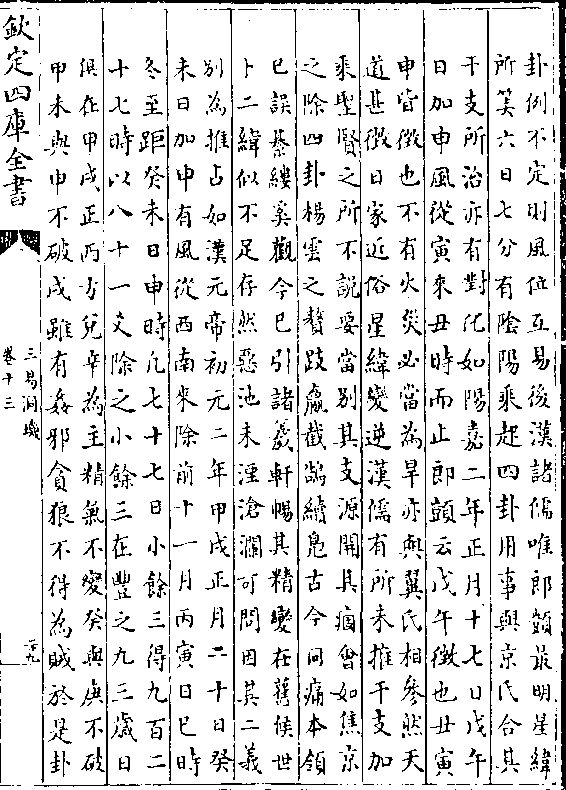 卦例不定則風位互易後漢諸儒唯郎顗最明星緯
所筭六日七分有陰陽乘起四卦用事與京氏合其
干支所治亦有對化如陽嘉二年正月十七日戊午
日加申風從寅來丑時而止即顗云戊午徵也丑寅
申皆徵也不有火災必當為旱亦與翼氏相參然天
道甚微日家近俗星緯變逆漢儒有所未推干支加
乘聖賢之所不說要當別其支源開其痼會如焦京
之除四卦楊雲之贅踦嬴截鵠續鳬古今同痛本領
已誤綦縷奚觀今已引諸羲軒暢其精變在舊候世
卜二緯似不足存然惡池未湮滄瀾可問因其二義
別為推占如漢元帝初元二年甲戌正月二十日癸
未日加申有風從西南來除前十一月丙寅日巳時
冬至距癸未日申時凡七十七日小餘三得九百二
十七時以八十一爻除之小餘三在豐之九三歲日
俱在甲戌正西方兌辛為主精氣不變癸與庚不破
甲未與申不破戌雖有姦邪貪狼不得為賊於是卦
欽定四庫全書
三易洞璣
卷十三
二九